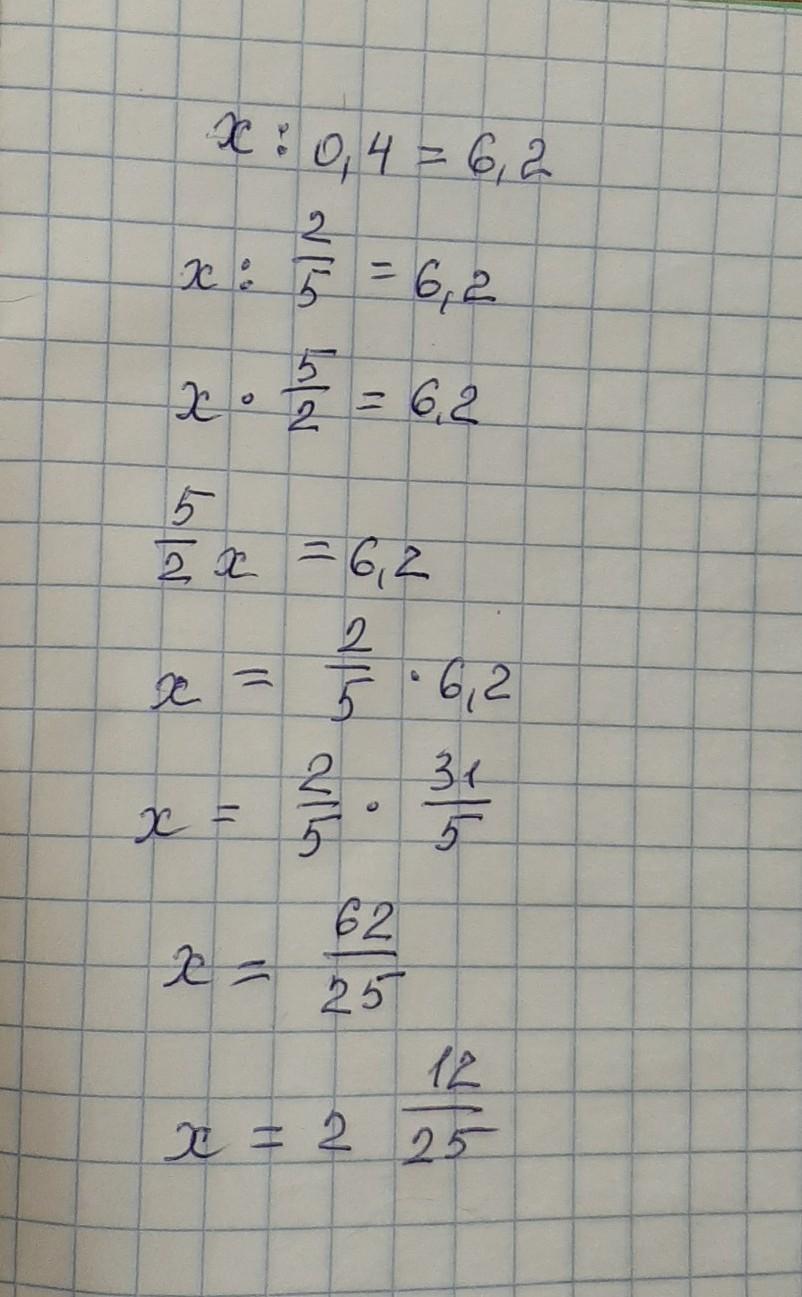 x : 0,4 = 6,2
x : 2/5 = 6,2
x · 5/2 = 6,2
5/2 x = 6,2
x = 2/5 · 6,2
x = 2/5 · 31/5
x = 62/25
x = 2 12/25